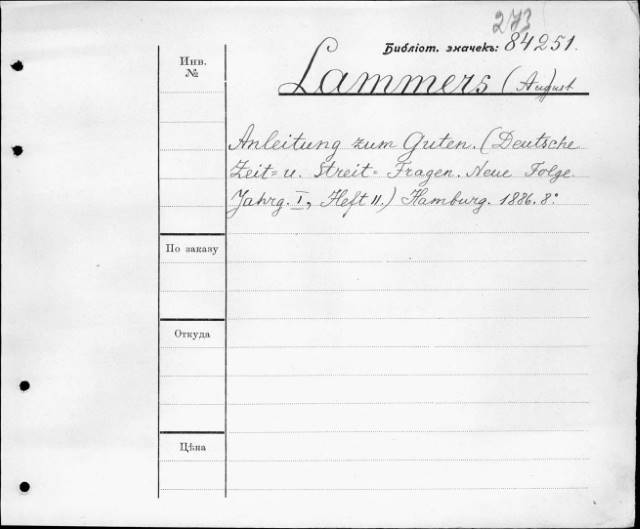 273
Библіот. значекъ: 84251.
Инв.
№
Lammers (August
Anleitung zum Guten. (Deutsche
Zeit= u. Streit= Fragen. Neue Folge
Jahrg. I, Heft 11.) Hamburg. 1886. 8°.
По заказу
Откуда
Цѣна